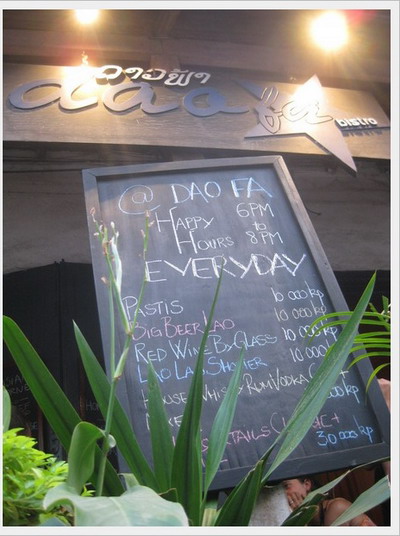 ດາວຟ້າ
dao fa
bistro
@ DAO FA
HAPPY 6PM
HOURS to 8PM
EVERYDAY
PASTIS 10 000 kp
BIG BEER LAO 10 000 kp
RED WINE By GLASS 10 000 kp
LAO LAO SHAKER 10 000
HOUSE WHISKY RUM VODKA
000 kp
TAILS CLASSIC +
30 000 kp